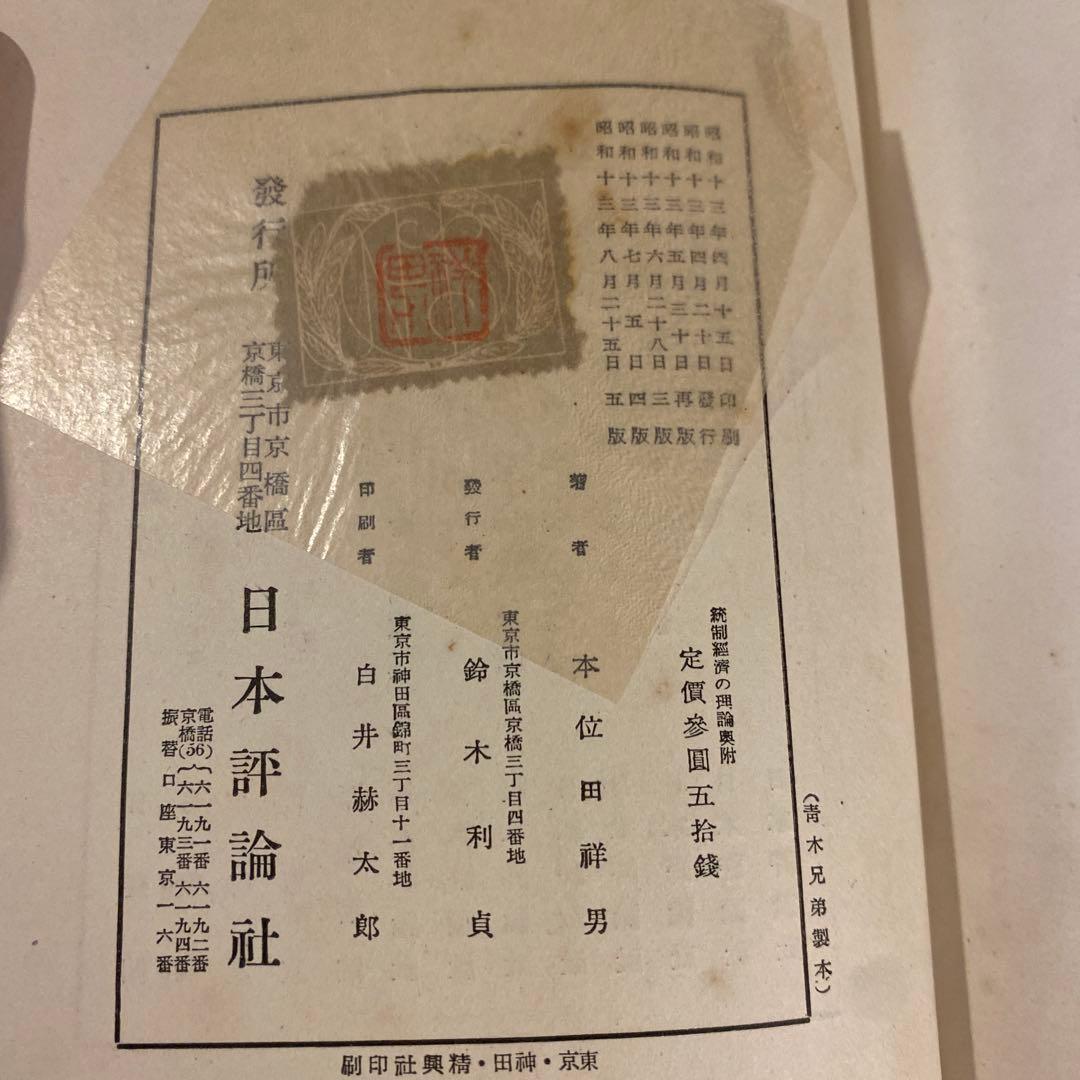 昭和十三年四月十五日印刷
昭和十三年四月二十日發行
昭和十三年五月三十日再版
昭和十三年六月二十八日三版
昭和十三年七月五日四版
昭和十三年八月二十五日五版
統制經濟の理論奥附
定價參圓五拾錢
著者
本位田祥男
東京市京橋區京橋三丁目四番地
發行者
鈴木利貞
東京市神田區錦町三丁目十一番地
印刷者
白井赫太郎
發行所
東京市京橋區
京橋三丁目四番地
日本評論社
電話京橋(56){六一九一番 六一九二番
六一九三番 六一九四番
振替口座東京一六番
(青木兄弟製本)
東京・神田・精興社印刷